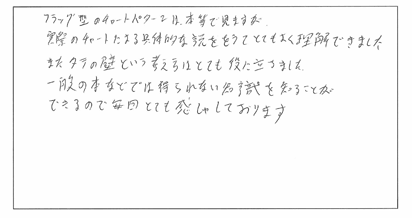 フラッグ型のチャートパターンは、本等で見ますが
実際のチャートによる具体的な説をもうてとてもよく理解できました
またタテの壁という考え方はとても役に立ちました
一般の本などでは得られない知識を知ることが
できるので毎回とても感しゃしております